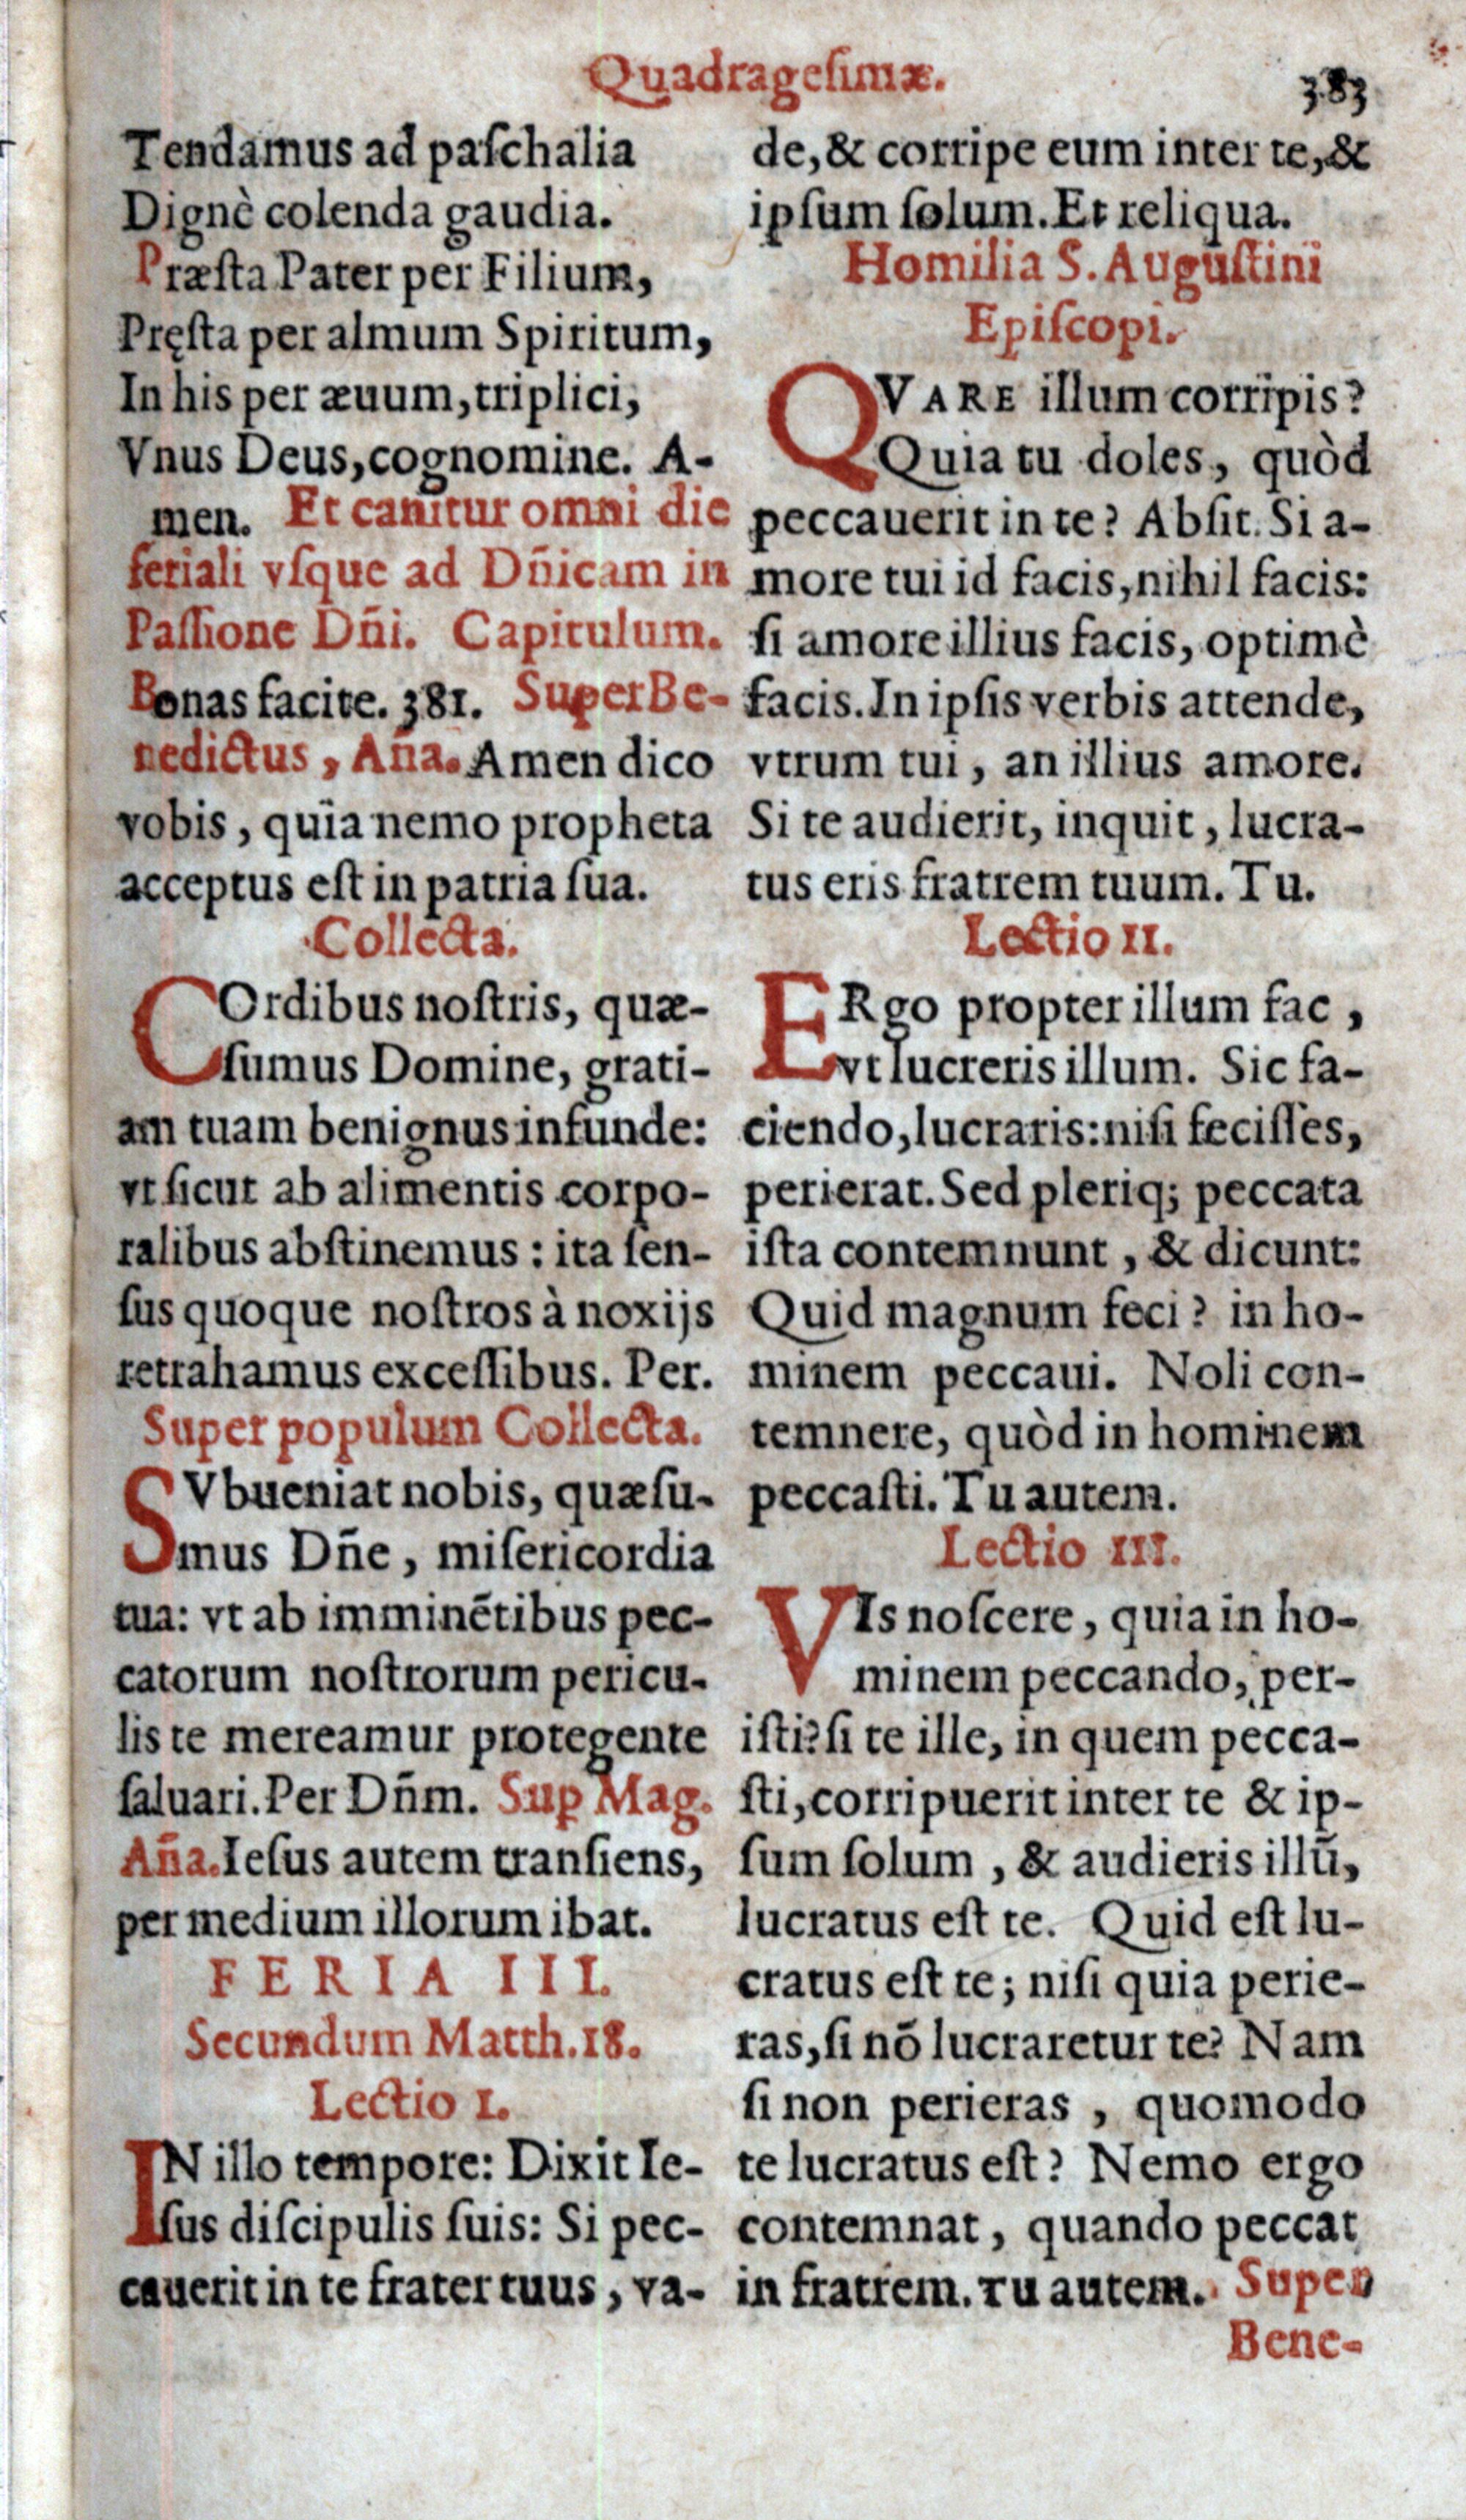 Quadragesimæ.
383
Tendamus ad paſchalia
Dignè colenda gaudia.
Præſta Pater per Filium,
Pręſta per almum Spiritum,
In his per æuum, triplici,
Vnus Deus, cognomine. A-
men. Et canitur omni die
feriali vſque ad Dñicam in
Paſſione Dñi. Capitulum.
Bonas facite. 381. Super Be-
nedictus, Aña. Amen dico
vobis, quia nemo propheta
acceptus eſt in patria ſua.
Collecta.
COrdibus noſtris, quæ-
ſumus Domine, grati-
am tuam benignus infunde:
vt ſicut ab alimentis corpo-
ralibus abſtinemus: ita ſen-
ſus quoque noſtros à noxijs
retrahamus exceſſibus. Per.
Super populum Collecta.
SVbueniat nobis, quæſu-
mus Dñe, miſericordia
tua: vt ab imminētibus pec-
catorum noſtrorum pericu-
lis te mereamur protegente
ſaluari. Per Dñm. Sup Mag.
Aña. Ieſus autem tranſiens,
per medium illorum ibat.
FERIA III.
Secundum Matth. 18.
Lectio I.
IN illo tempore: Dixit Ie-
ſus diſcipulis ſuis: Si pec-
cauerit in te frater tuus, va-
de, & corripe eum inter te, &
ipſum ſolum. Et reliqua.
Homilia S. Auguſtini
Epiſcopi.
QVARE illum corripis?
Quia tu doles, quòd
peccauerit in te? Abſit. Si a-
more tui id facis, nihil facis:
ſi amore illius facis, optimè
facis. In ipſis verbis attende,
vtrum tui, an illius amore.
Si te audierit, inquit, lucra-
tus eris fratrem tuum. Tu.
Lectio II.
ERgo propter illum fac,
vt lucreris illum. Sic fa-
ciendo, lucraris: niſi feciſſes,
perierat. Sed pleriq; peccata
iſta contemnunt, & dicunt:
Quid magnum feci? in ho-
minem peccaui. Noli con-
temnere, quòd in hominem
peccaſti. Tu autem.
Lectio III.
VIs noſcere, quia in ho-
minem peccando, per-
iſti? ſi te ille, in quem pecca-
ſti, corripuerit inter te & ip-
ſum ſolum, & audieris illū,
lucratus eſt te. Quid eſt lu-
cratus eſt te; niſi quia perie-
ras, ſi nō lucraretur te? Nam
ſi non perieras, quomodo
te lucratus eſt? Nemo ergo
contemnat, quando peccat
in fratrem. Tu autem. Super
Bene-